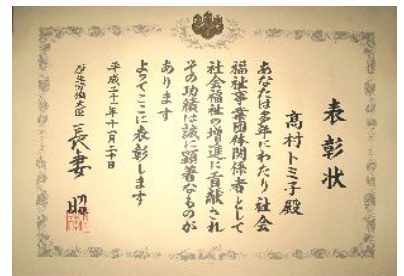 表彰状
高村トミ子殿
あなたは多年にわたり社会
福祉事業団体関係者として
社会福祉の増進に貢献され
その功績は誠に顕著なものが
あります
よってここに表彰します
平成二十一年十一月二十日
厚生労働大臣 長妻 昭